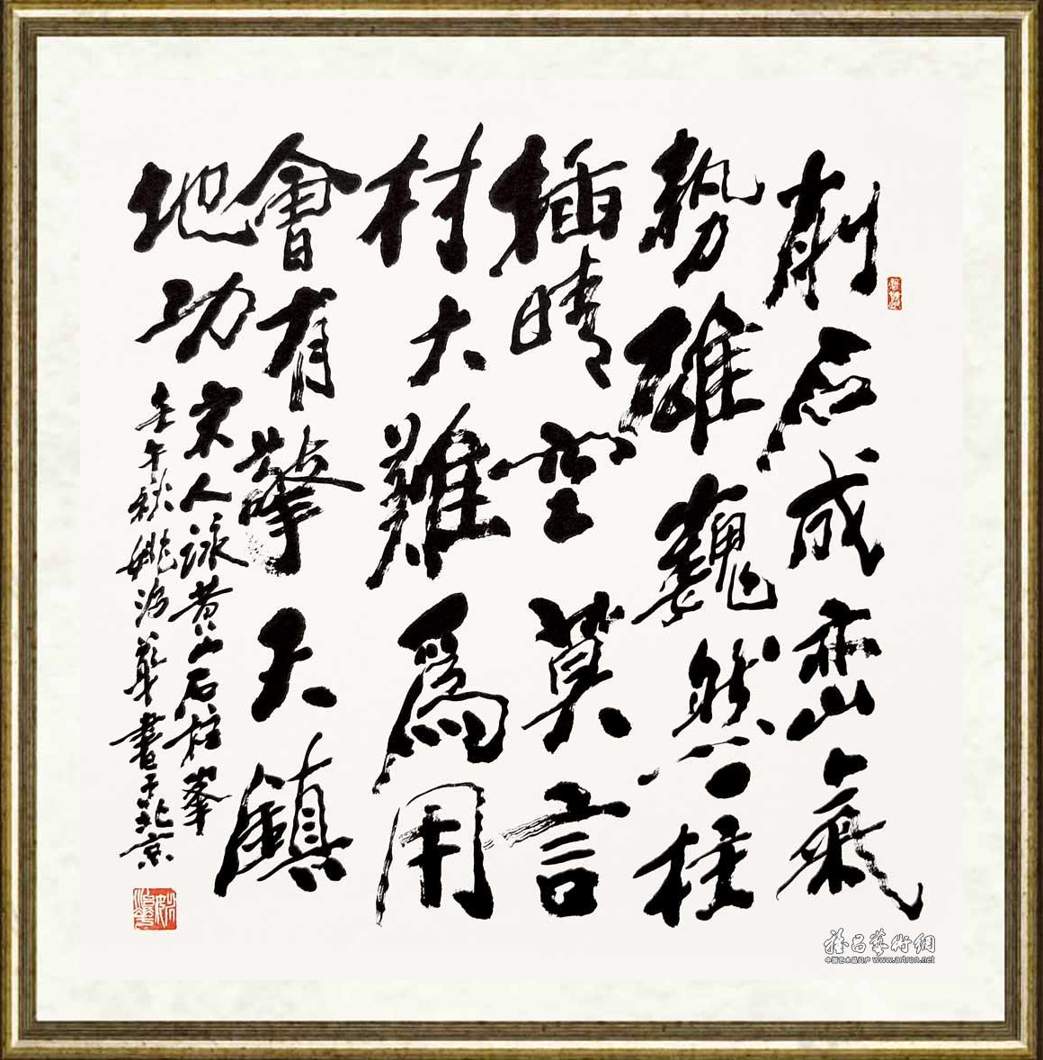 削石成峦氣
勢雄巍然一柱
插晴空莫言
材大難為用
會有擎天鎮
地功
宋人詠黃山石柱峯
壬午秋姚治華書于北京
中国艺术品门户 www.artron.net